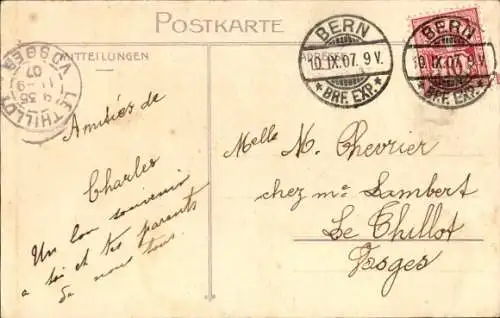 POSTKARTE
MITTEILUNGEN
ADRESSE
BERN
10.IX.07. 9 V.
BRF. EXP.
BERN
10.IX.07. 9 V.
BRF. EXP.
LE THILLOT
VOSGES
9 35
11 - 9
07
Amitiés de
Charles
Un bon souvenir
a toi et tes parents
de nous tous.
Melle M. Chevrier
chez Me Lambert
Le Thillot
Vosges